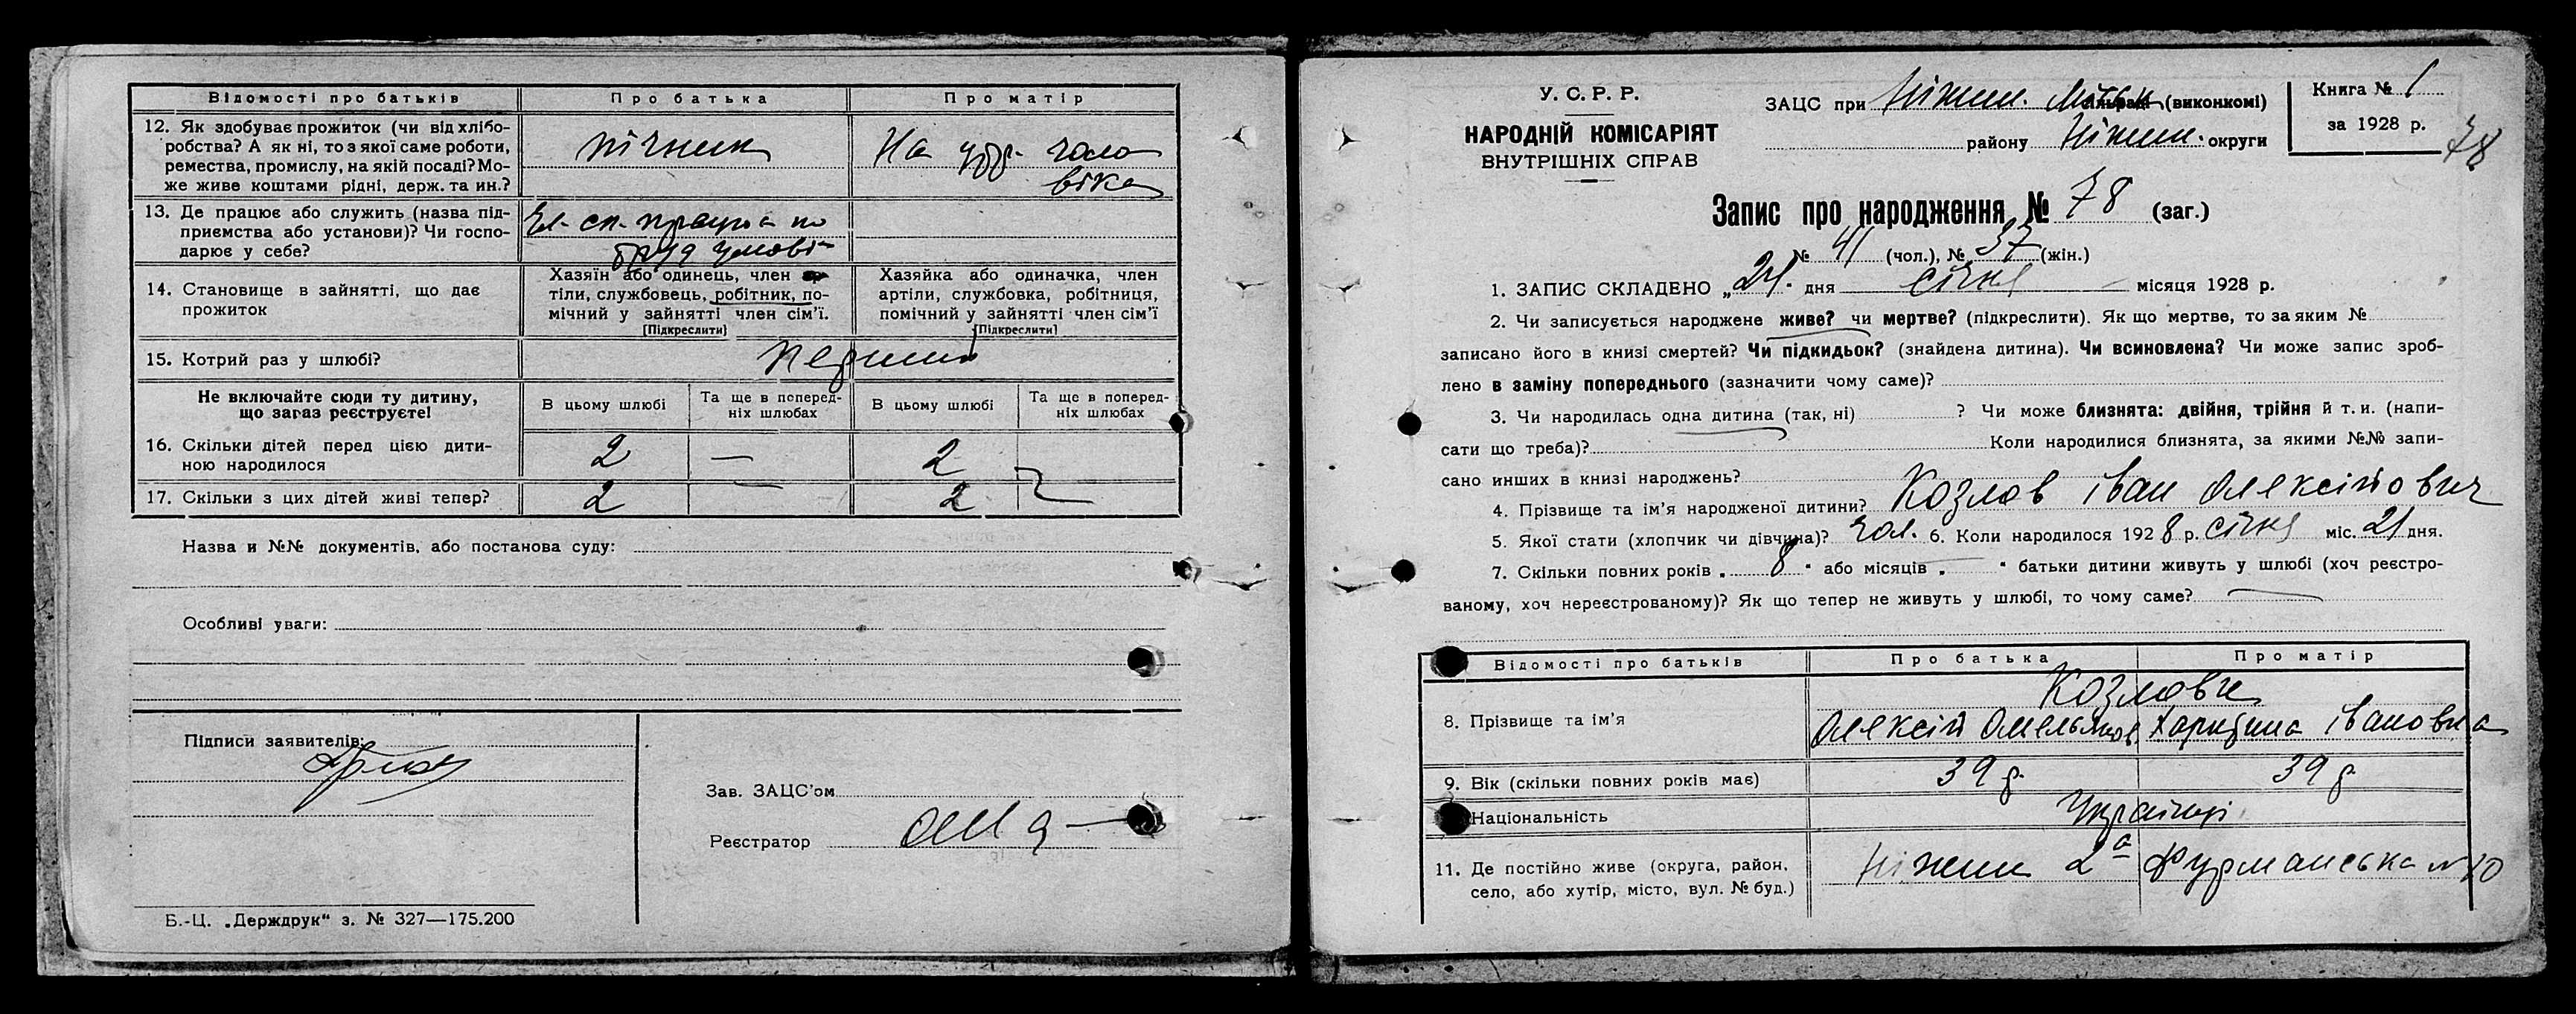 Відомості про батьків Про батька Про матір
12. Як здобуває прожиток (чи від хлібо-
робства? А як ні, то з якої саме роботи,
ремества, промислу, на якій посаді? Мо-
же живе коштами рідні, держ. та ин.?
пічник
На утр. чоло
віка
13. Де працює або служить (назва під-
приємства або установи)? Чи госпо-
дарює у себе?
працює по
труд умові
14. Становище в зайнятті, що дає
прожиток
Хазяїн або одинець, член ар-
тіли, службовець, робітник, по-
мічний у зайнятті член сім'ї.
[Підкреслити]
Хазяйка або одиначка, член
артіли, службовка, робітниця,
помічний у зайнятті член сім'ї
[Підкреслити]
15. Котрий раз у шлюбі?
Не включайте сюди ту дитину,
що зараз реєструєте!
В цьому шлюбі Та ще в поперед-
ніх шлюбах В цьому шлюбі Та ще в поперед-
ніх шлюбах
16. Скільки дітей перед цією дити-
ною народилося 2 — 2
17. Скільки з цих дітей живі тепер? 2 — 2
Назва и №№ документів, або постанова суду:
Особливі уваги:
Підписи заявителів:
Зав. ЗАЦС'ом
Реєстратор
Б.-Ц. „Держдрук“ з. № 327—175.200
У. С. Р. Р.
НАРОДНІЙ КОМІСАРІЯТ
ВНУТРІШНІХ СПРАВ
ЗАЦС при Ніжин. (виконкомі)
району Ніжин. округи
Книга № 1
за 1928 р.
78
Запис про народження № 78 (заг.)
№ 41 (чол.), № 37 (жін.)
1. ЗАПИС СКЛАДЕНО „24“ дня січня місяця 1928 р.
2. Чи записується народжене живе? чи мертве? (підкреслити). Як що мертве, то за яким №
записано його в книзі смертей? Чи підкидьок? (знайдена дитина). Чи всиновлена? Чи може запис зроб-
лено в заміну попереднього (зазначити чому саме)?
3. Чи народилась одна дитина (так, ні) ? Чи може близнята: двійня, трійня й т. и. (напи-
сати що треба)? Коли народилися близнята, за якими №№ запи-
сано инших в книзі народжень?
4. Прізвище та ім'я народженої дитини? Козлов Іван Олексійович
5. Якої стати (хлопчик чи дівчина)? чол. 6. Коли народилося 1928 р. січня міс. 21 дня.
7. Скільки повних років „ 8 “ або місяців „ — “ батьки дитини живуть у шлюбі (хоч реєстро-
ваному, хоч нереєстрованому)? Як що тепер не живуть у шлюбі, то чому саме? —
Відомості про батьків Про батька Про матір
Козлови
8. Прізвище та ім'я Олексій Омельянов. Харитина Івановна
9. Вік (скільки повних років має) 39 р. 39 р.
Національність Українці
11. Де постійно живе (округа, район,
село, або хутір, місто, вул. № буд.)
Ніжин 2а Фурманська № 10